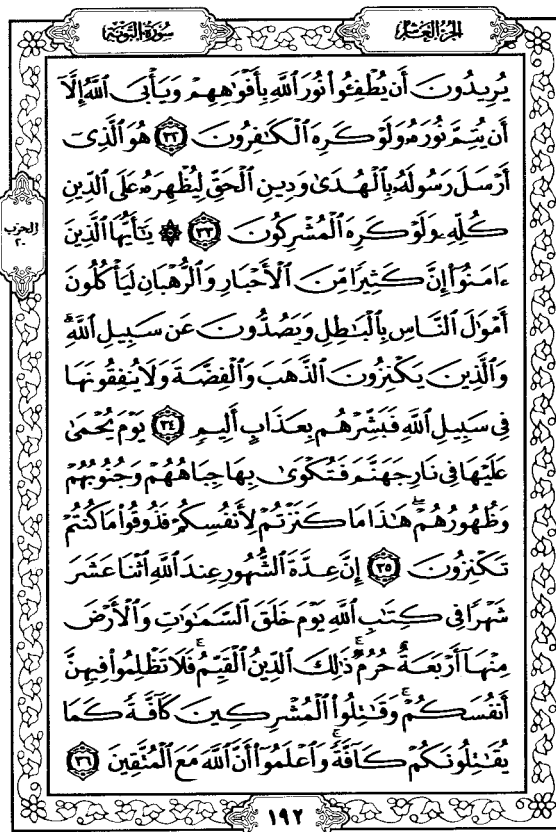 سُورَةُ التَّوْبَةِ
الجُزءُ العَاشِرُ
يُرِيدُونَ أَن يُطْفِـُٔوا۟ نُورَ ٱللَّهِ بِأَفْوَٰهِهِمْ وَيَأْبَى ٱللَّهُ إِلَّآ
أَن يُتِمَّ نُورَهُۥ وَلَوْ كَرِهَ ٱلْكَٰفِرُونَ ٣٢ هُوَ ٱلَّذِىٓ
أَرْسَلَ رَسُولَهُۥ بِٱلْهُدَىٰ وَدِينِ ٱلْحَقِّ لِيُظْهِرَهُۥ عَلَى ٱلدِّينِ
كُلِّهِۦ وَلَوْ كَرِهَ ٱلْمُشْرِكُونَ ٣٣ ۞ يَٰٓأَيُّهَا ٱلَّذِينَ
ءَامَنُوٓا۟ إِنَّ كَثِيرًا مِّنَ ٱلْأَحْبَارِ وَٱلرُّهْبَانِ لَيَأْكُلُونَ
أَمْوَٰلَ ٱلنَّاسِ بِٱلْبَٰطِلِ وَيَصُدُّونَ عَن سَبِيلِ ٱللَّهِ ۗ
وَٱلَّذِينَ يَكْنِزُونَ ٱلذَّهَبَ وَٱلْفِضَّةَ وَلَا يُنفِقُونَهَا
فِى سَبِيلِ ٱللَّهِ فَبَشِّرْهُم بِعَذَابٍ أَلِيمٍ ٣٤ يَوْمَ يُحْمَىٰ
عَلَيْهَا فِى نَارِ جَهَنَّمَ فَتُكْوَىٰ بِهَا جِبَاهُهُمْ وَجُنُوبُهُمْ
وَظُهُورُهُمْ ۖ هَٰذَا مَا كَنَزْتُمْ لِأَنفُسِكُمْ فَذُوقُوا۟ مَا كُنتُمْ
تَكْنِزُونَ ٣٥ إِنَّ عِدَّةَ ٱلشُّهُورِ عِندَ ٱللَّهِ ٱثْنَا عَشَرَ
شَهْرًا فِى كِتَٰبِ ٱللَّهِ يَوْمَ خَلَقَ ٱلسَّمَٰوَٰتِ وَٱلْأَرْضَ
مِنْهَآ أَرْبَعَةٌ حُرُمٌ ۚ ذَٰلِكَ ٱلدِّينُ ٱلْقَيِّمُ ۚ فَلَا تَظْلِمُوا۟ فِيهِنَّ
أَنفُسَكُمْ ۚ وَقَٰتِلُوا۟ ٱلْمُشْرِكِينَ كَآفَّةً كَمَا
يُقَٰتِلُونَكُمْ كَآفَّةً ۚ وَٱعْلَمُوٓا۟ أَنَّ ٱللَّهَ مَعَ ٱلْمُتَّقِينَ ٣٦
الحزب
٢٠
١٩٢